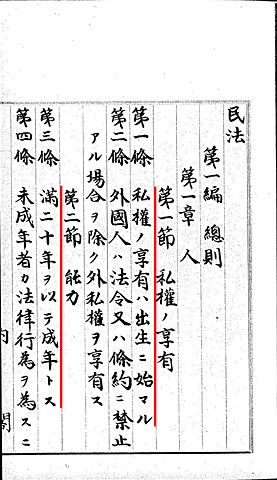 民法
第一編 總則
第一章 人
第一節 私權ノ享有
第一條 私權ノ享有ハ出生ニ始マル
第二條 外國人ハ法令又ハ條約ニ禁止
アル場合ヲ除ク外私權ヲ享有ス
第二節 能力
第三條 滿二十年ヲ以テ成年トス
第四條 未成年者カ法律行為ヲ為スニ
内閣